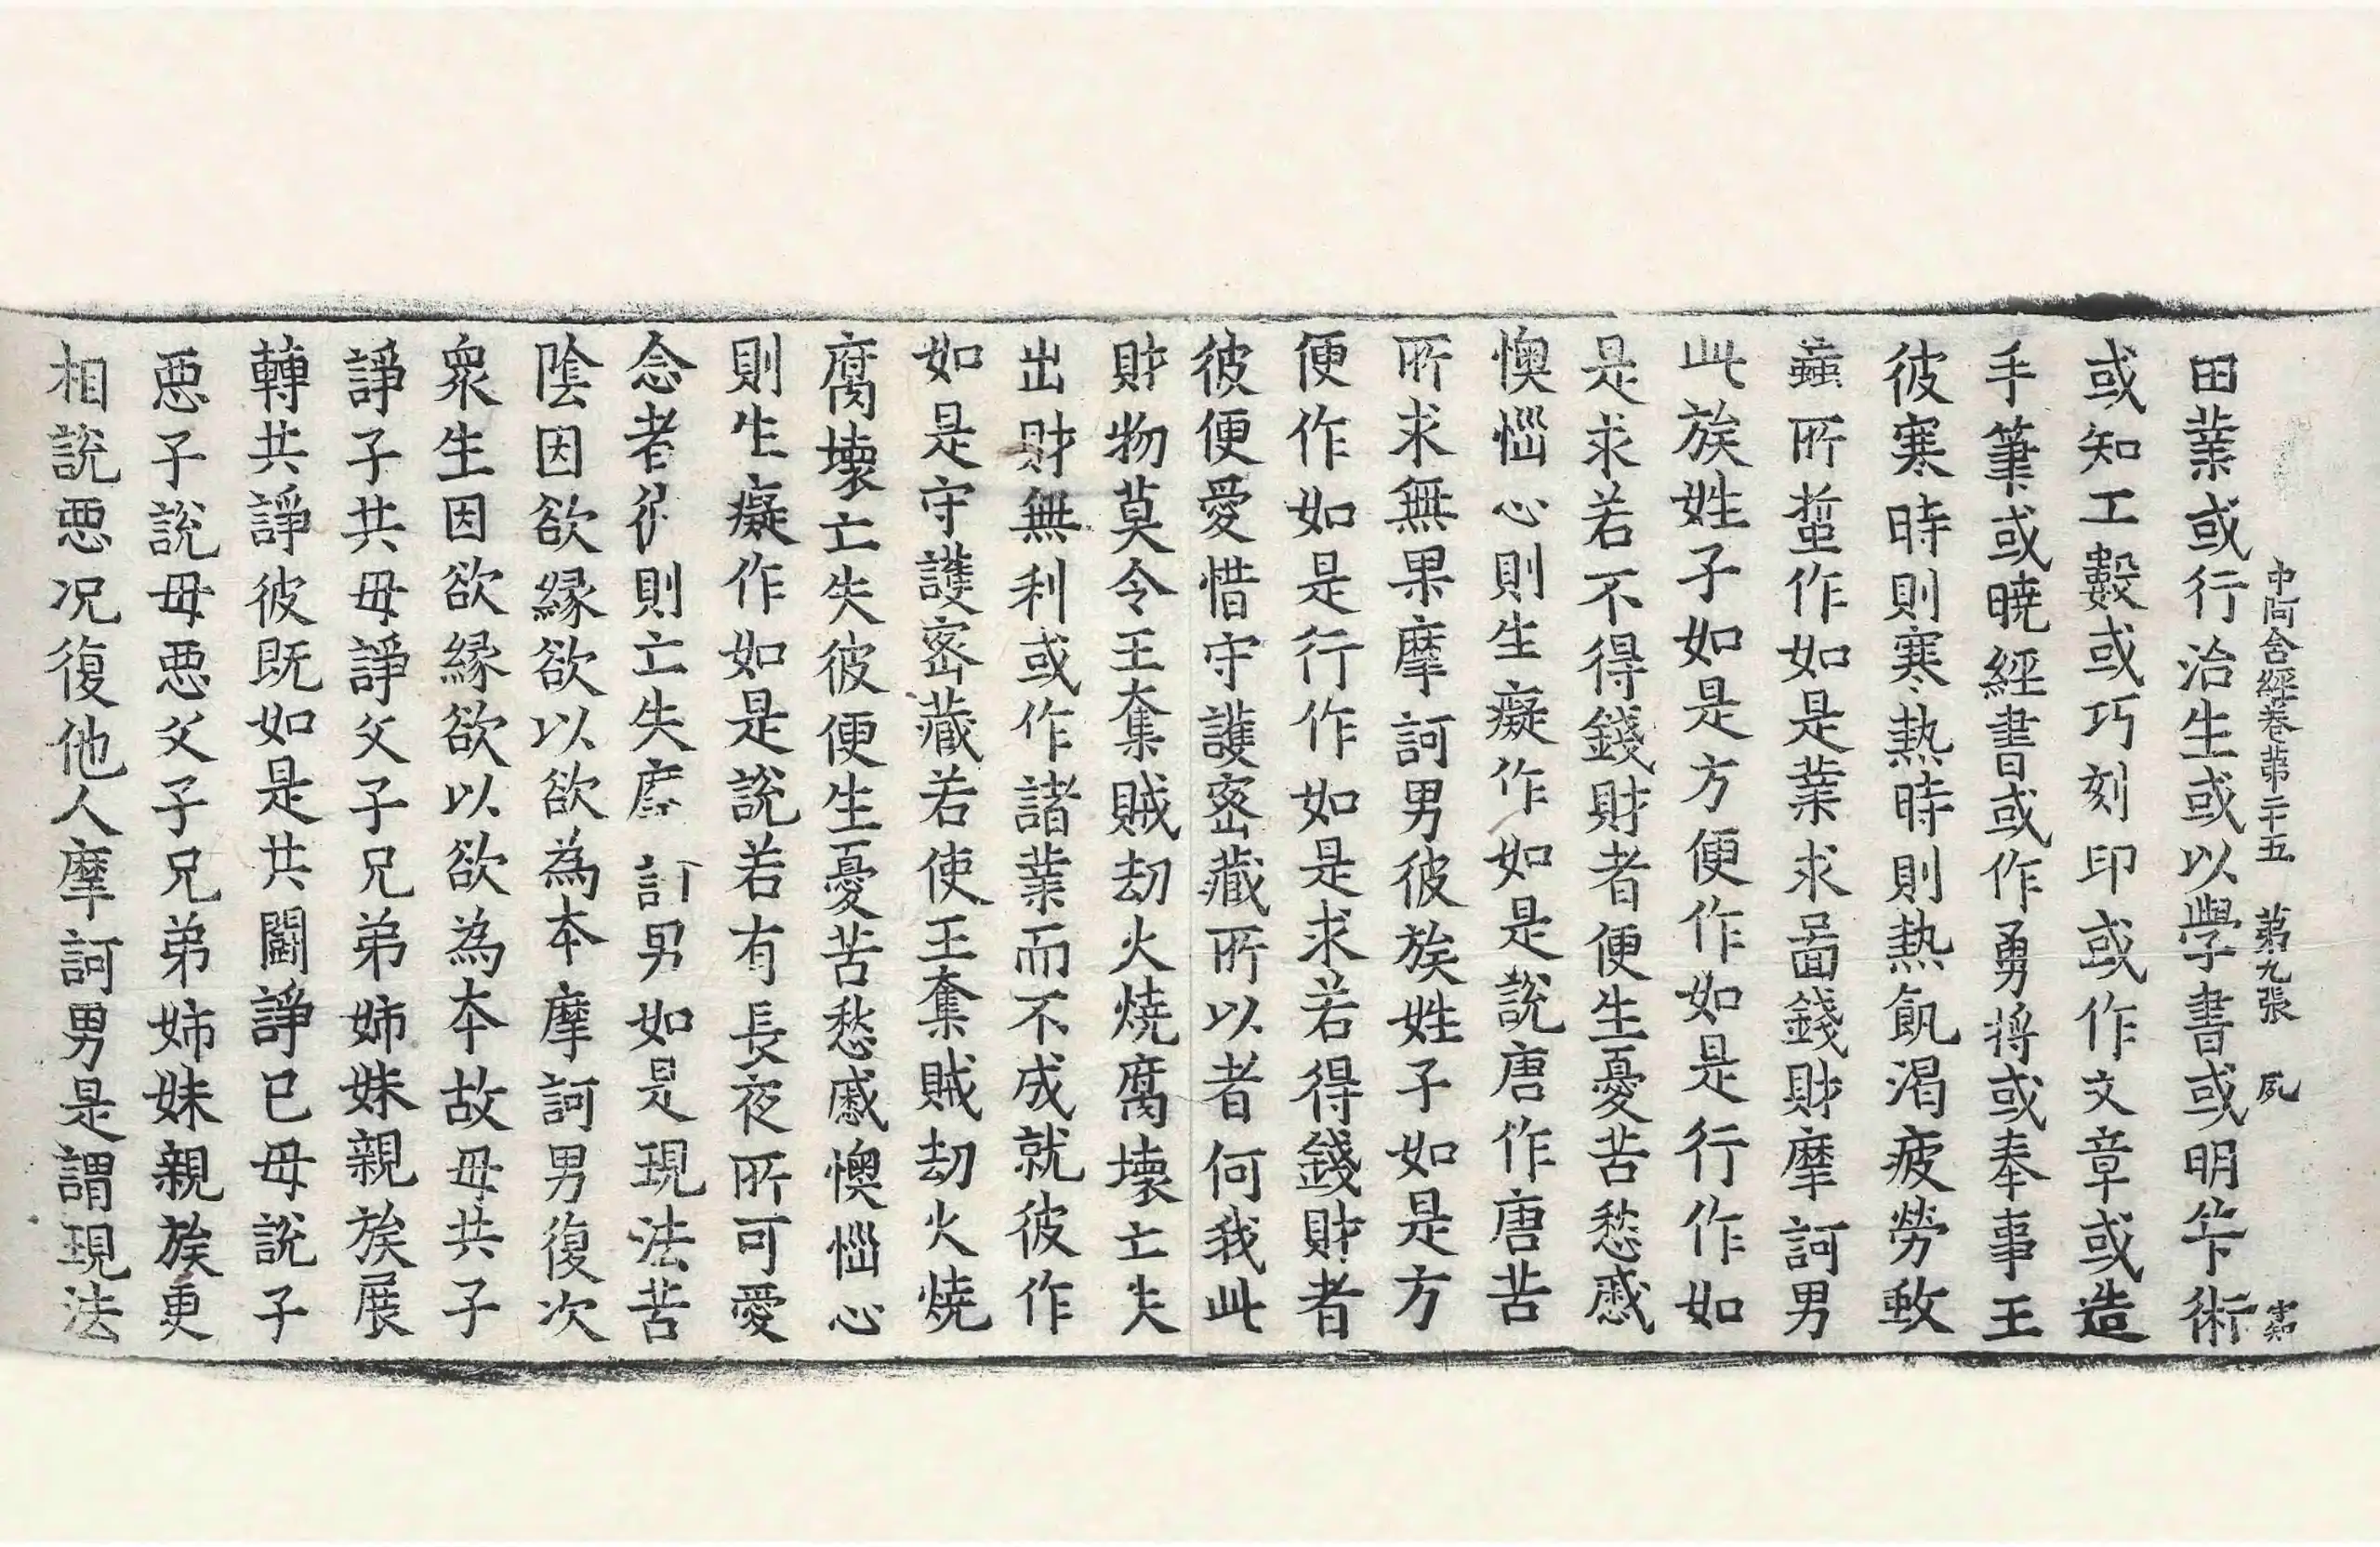 中阿含經卷第二十五　第九張　夙
田業或行治生或以學書或明笇術
或知工數或巧刻印或作文章或造
手筆或曉經書或作勇將或奉事王
彼寒時則寒熱時則熱飢渴疲勞蚊
蝱所蜇作如是業求啚錢財摩訶男
此族姓子如是方便作如是行作如
是求若不得錢財者便生憂苦愁慼
懊惱心則生癡作如是說唐作唐苦
所求無果摩訶男彼族姓子如是方
便作如是行作如是求若得錢財者
彼便愛惜守護密藏所以者何我此
財物莫令王奪賊劫火燒腐壞亡失
出財無利或作諸業而不成就彼作
如是守護密藏若使王奪賊劫火燒
腐壞亡失彼便生憂苦愁慼懊惱心
則生癡作如是說若有長夜所可愛
念者彼則亡失摩訶男如是現法苦
陰因欲緣欲以欲為本摩訶男復次
衆生因欲緣欲以欲為本故母共子
諍子共母諍父子兄弟姉妹親族展
轉共諍彼既如是共鬪諍已母說子
惡子說母惡父子兄弟姉妹親族更
相說惡況復他人摩訶男是謂現法